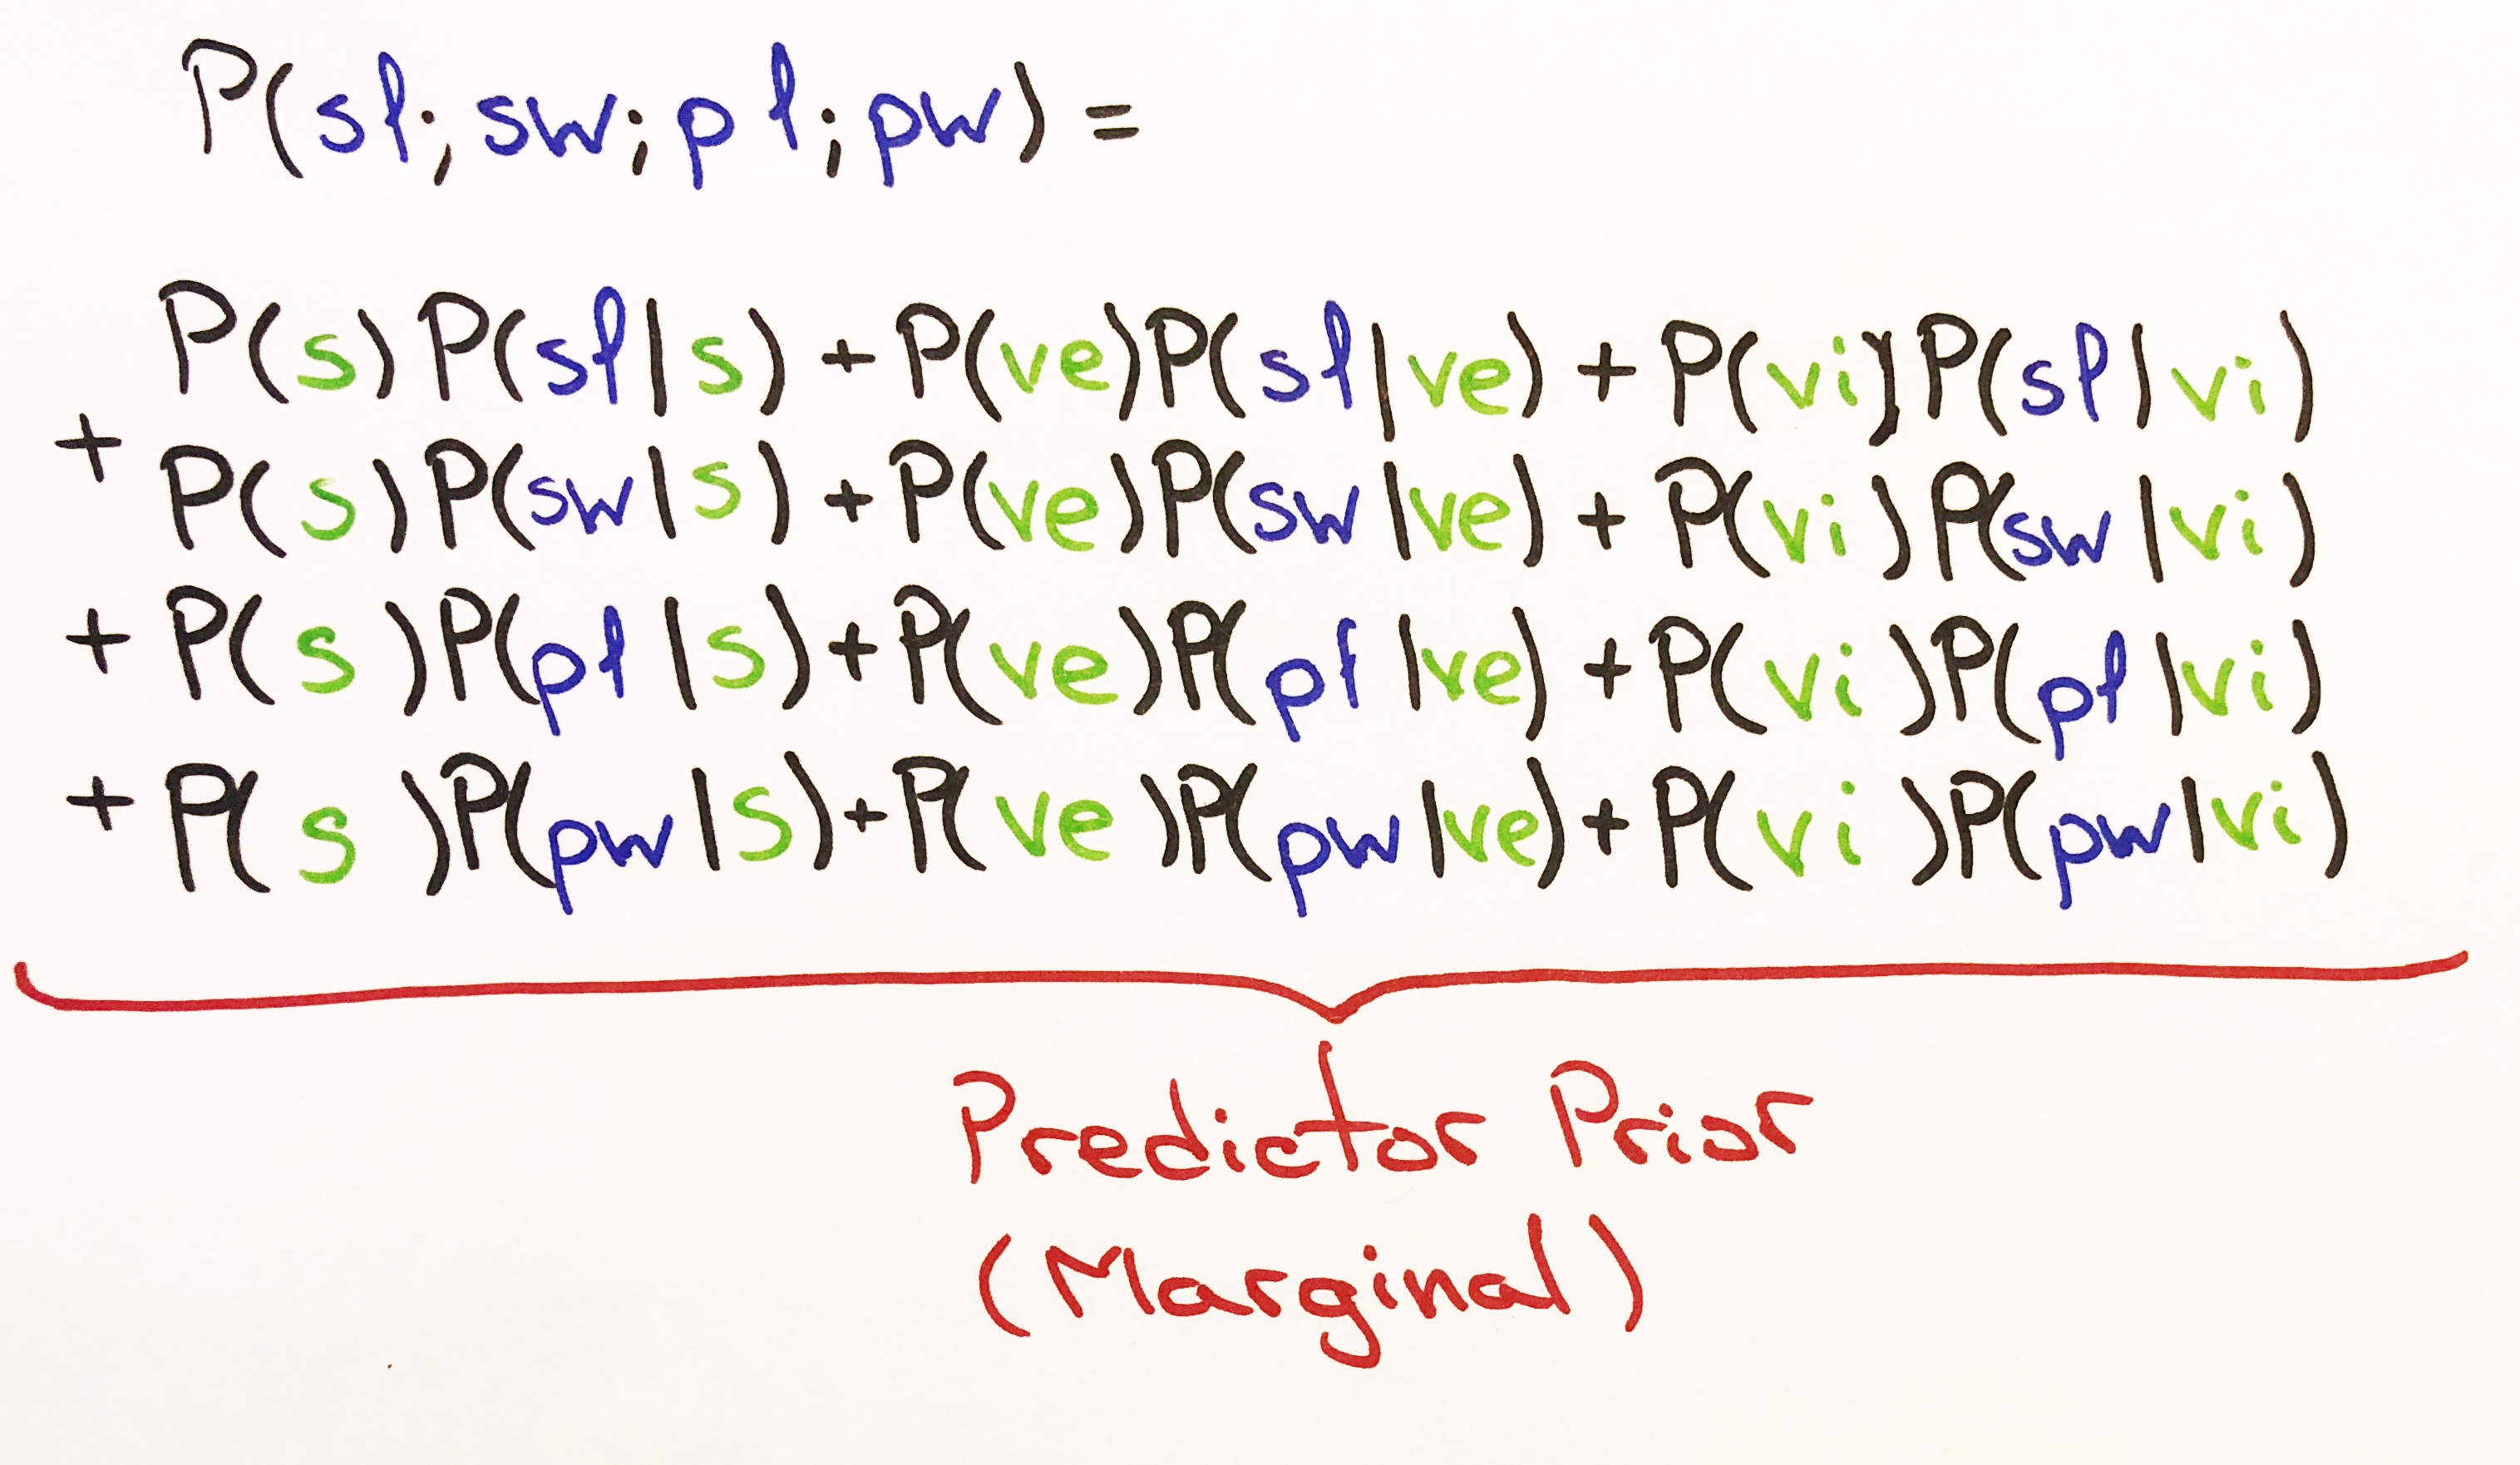 P(sl; sw; pl; pw) =
P(s)P(sl|s) + P(ve)P(sl|ve) + P(vi)P(sl|vi)
+ P(s)P(sw|s) + P(ve)P(sw|ve) + P(vi)P(sw|vi)
+ P(s)P(pl|s) + P(ve)P(pl|ve) + P(vi)P(pl|vi)
+ P(s)P(pw|s) + P(ve)P(pw|ve) + P(vi)P(pw|vi)
Predictor Prior
(Marginal)